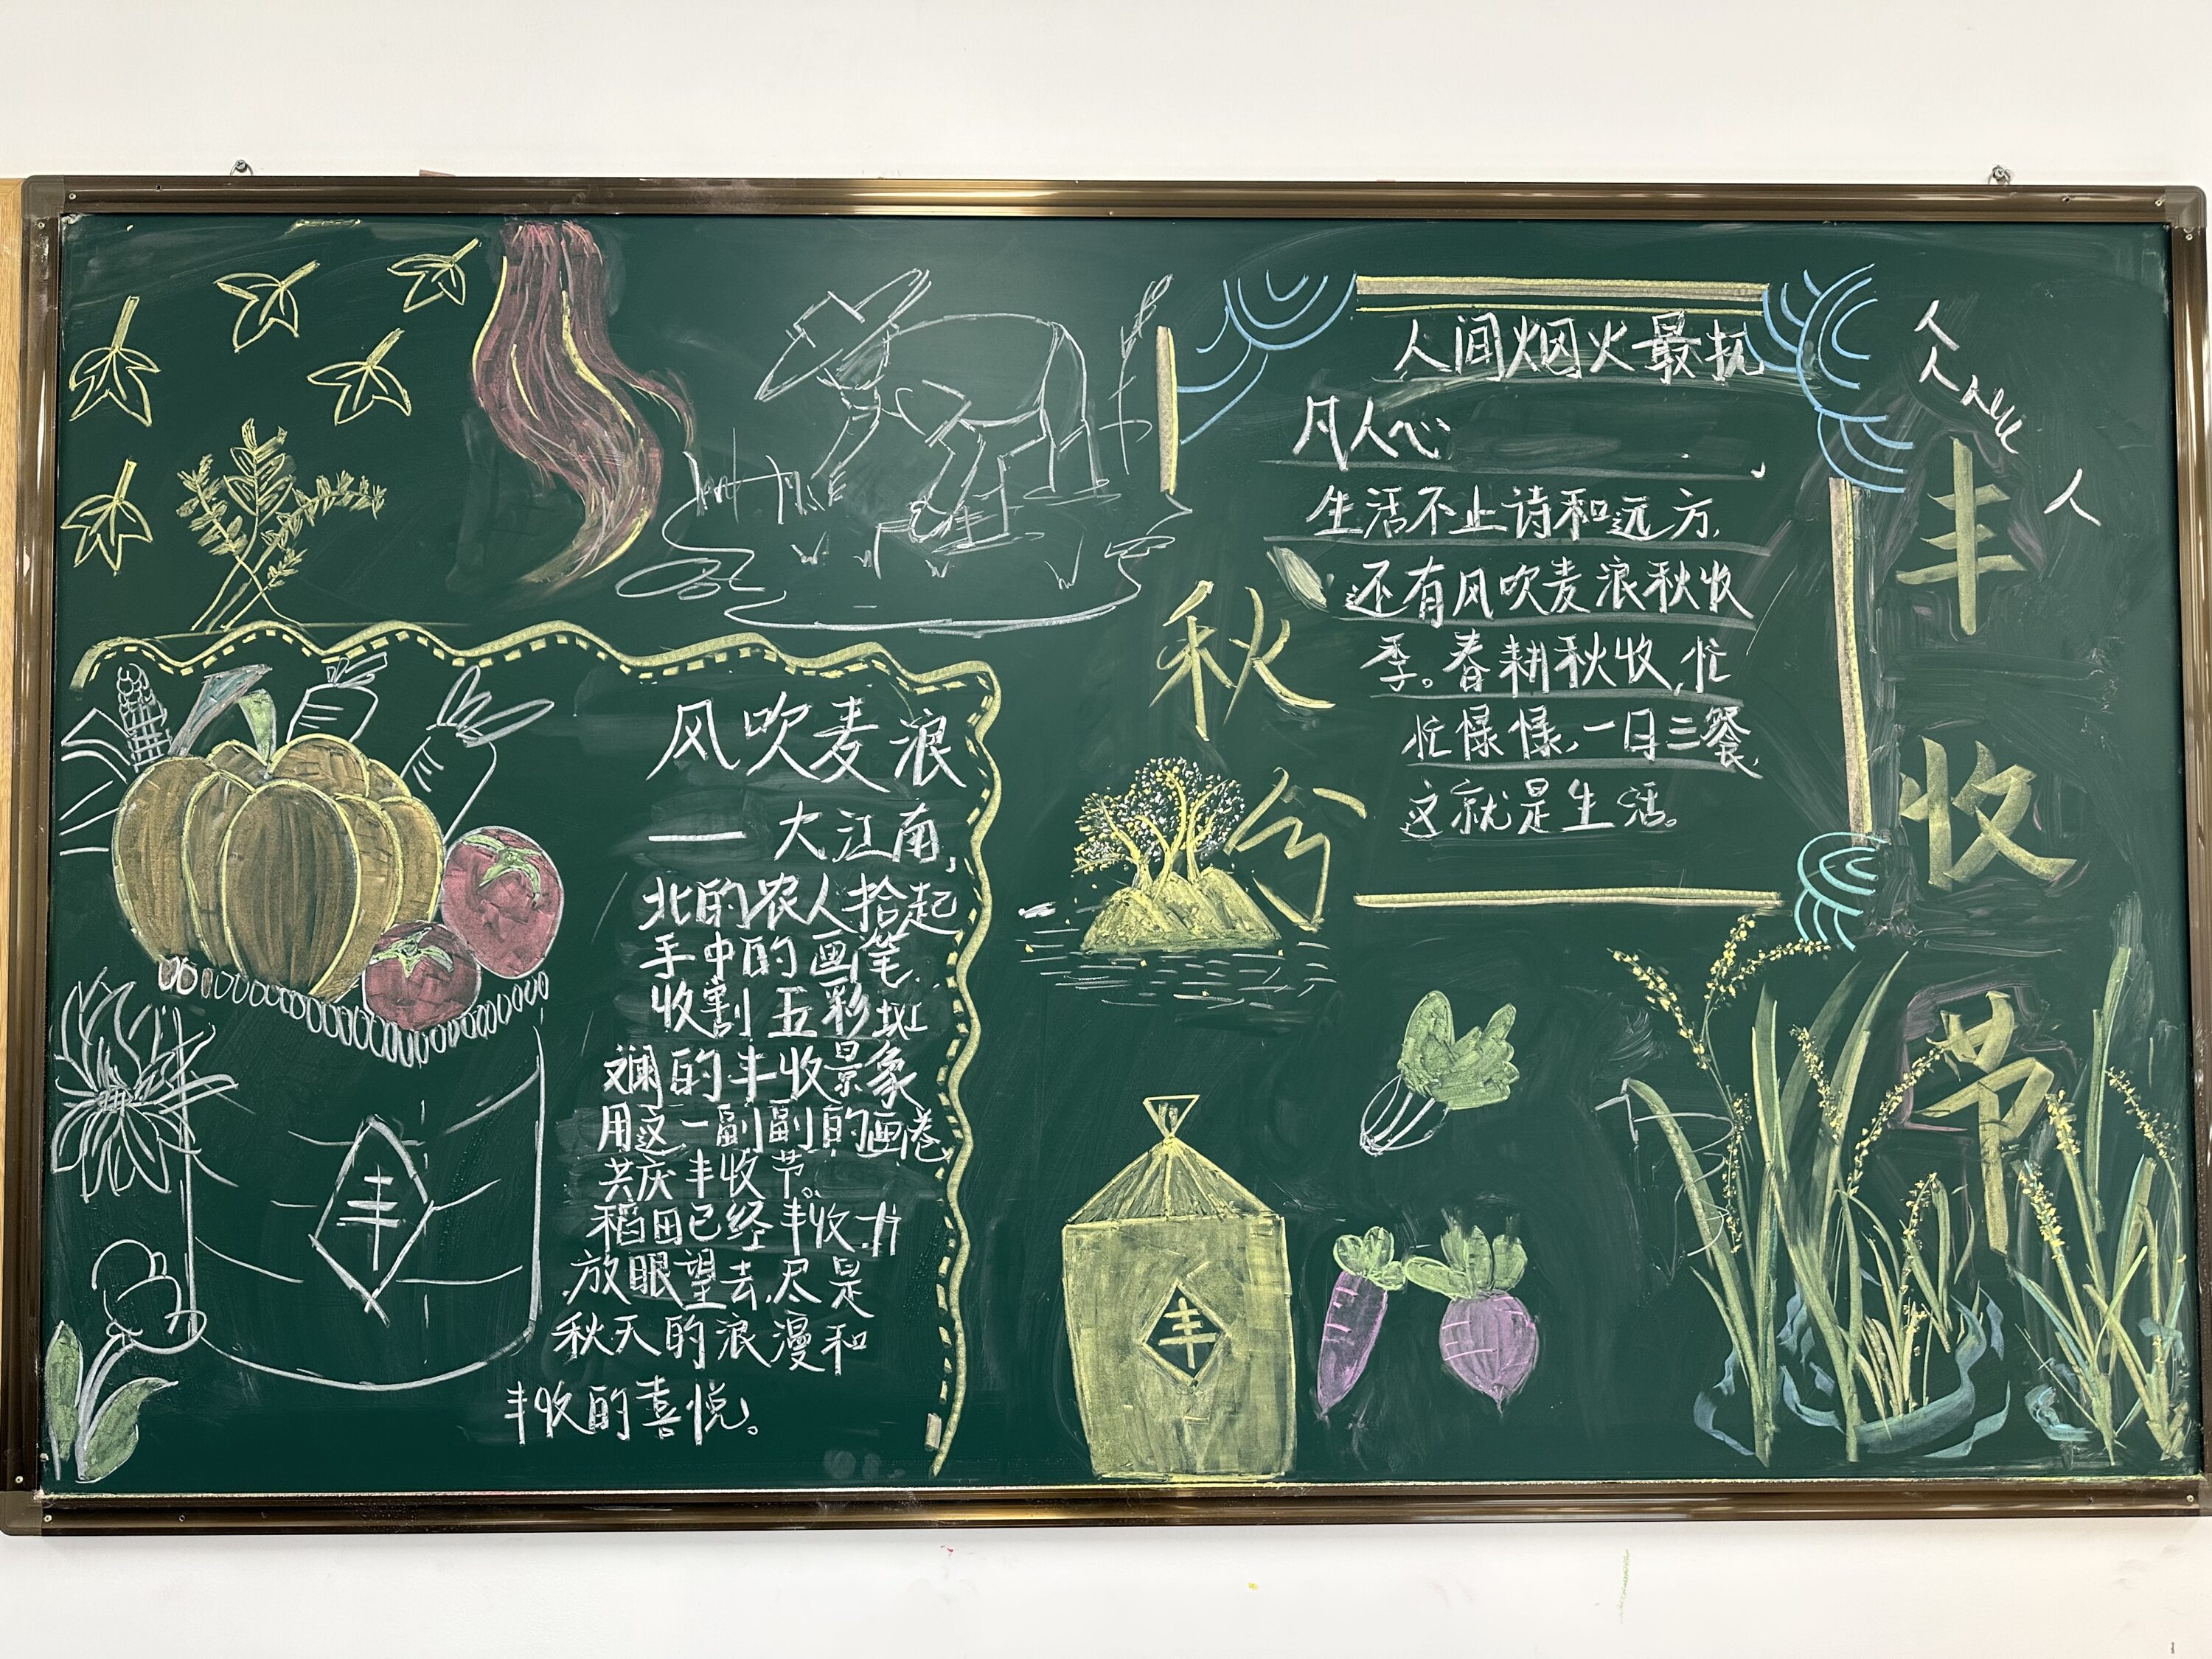 风吹麦浪
——大江南
北的农人拾起
手中的画笔.
收割五彩斑
斓的丰收景象
用这一副副的画卷
共庆丰收节。
稻田已经丰收
放眼望去,尽是
秋天的浪漫和
丰收的喜悦。
丰
秋
分
丰
人间烟火最抚
凡人心
生活不止诗和远方,
还有风吹麦浪秋收
季。春耕秋收,忙
忙碌碌,一日三餐,
这就是生活。
丰
收
节